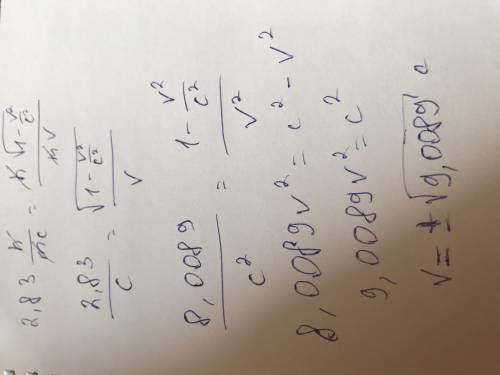 2,83 ħ/mc = ħ√(1-v²/c²)/mv
2,83/c = √(1-v²/c²)/v
8,0089/c² = (1-v²/c²)/v²
8,0089v² = c² - v²
9,0089v² = c²
v = ±√9,0089 c